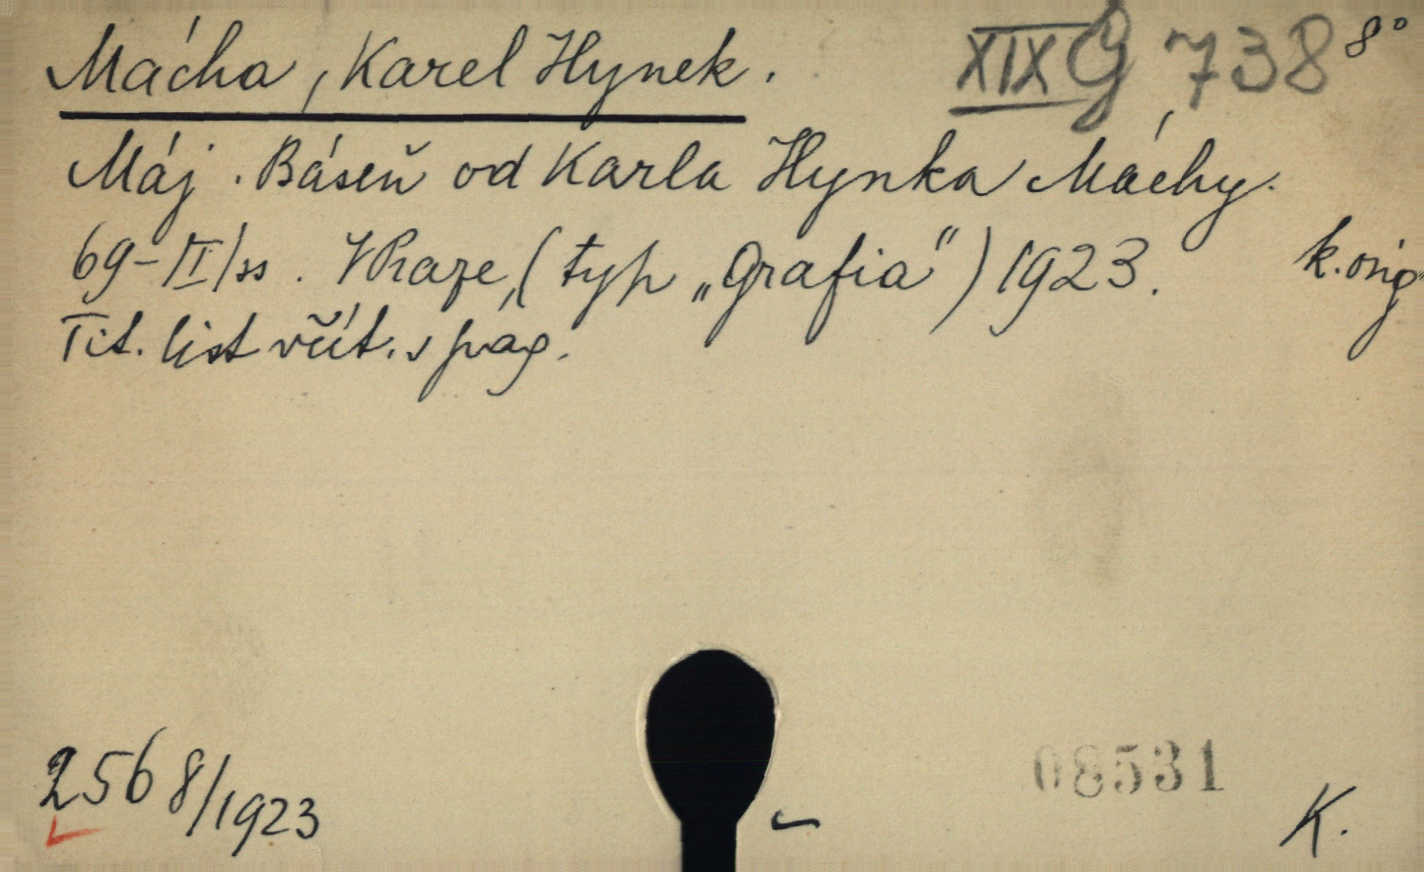 Mácha, Karel Hynek.
XIX G 738 8°
Máj. Báseň od Karla Hynka Máchy.
69-/II/ss. V Praze, (typ „Grafia") 1923.
k. orig.
Tit. list včít. v pag.
2568/1923
08531
K.